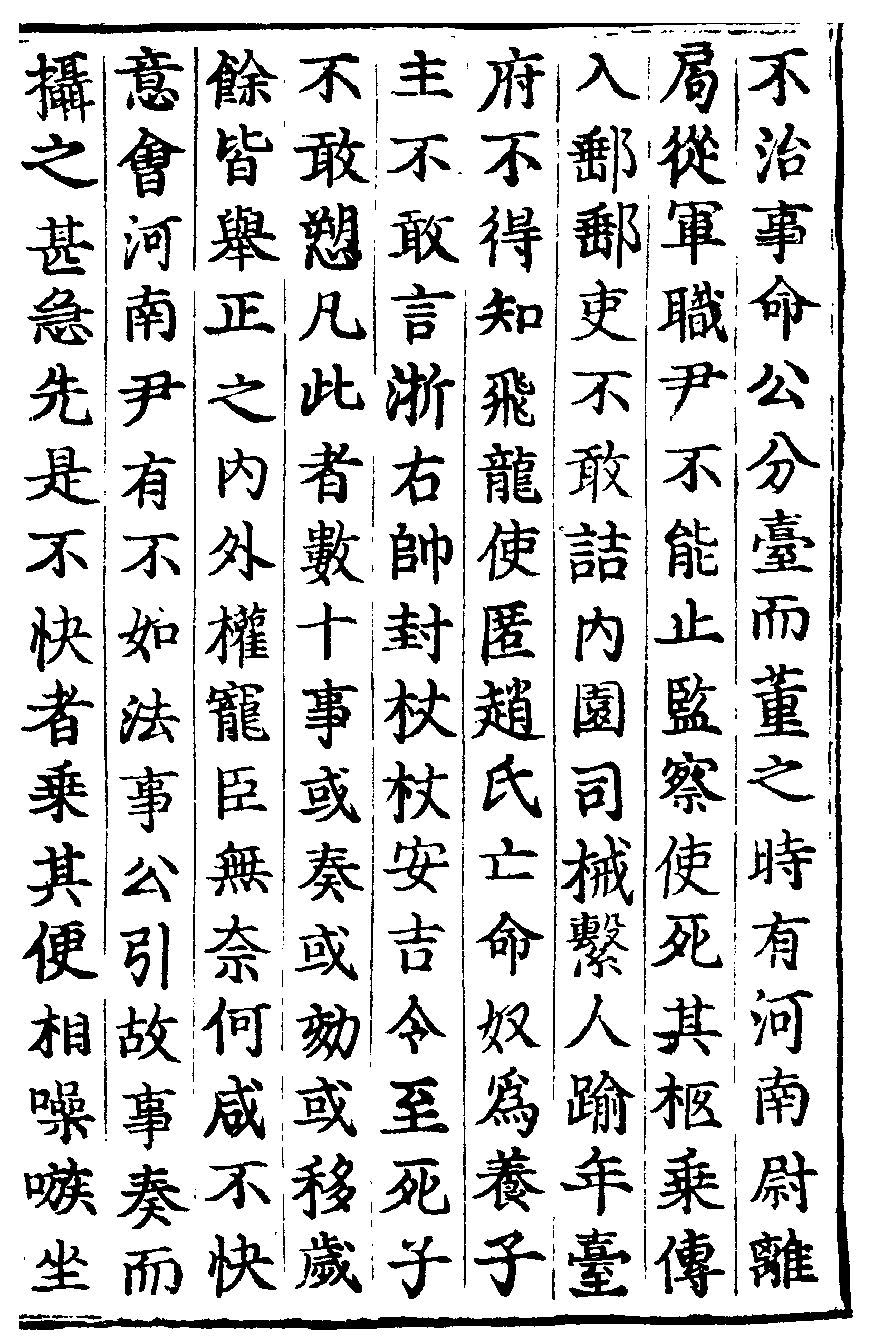 不治事命公分臺而董之時有河南尉離
局從軍職尹不能止監察使死其柩乗傳
入郵郵吏不敢詰内園司械繫人踰年臺
府不得知飛龍使匿趙氏亡命奴爲養子
主不敢言浙右帥封杖杖安吉令至死子
不敢愬凡此者數十事或奏或劾或移歲
餘皆舉正之内外權寵臣無奈何咸不快
意會河南尹有不如法事公引故事奏而
攝之甚急先是不快者乗其便相噪嗾坐